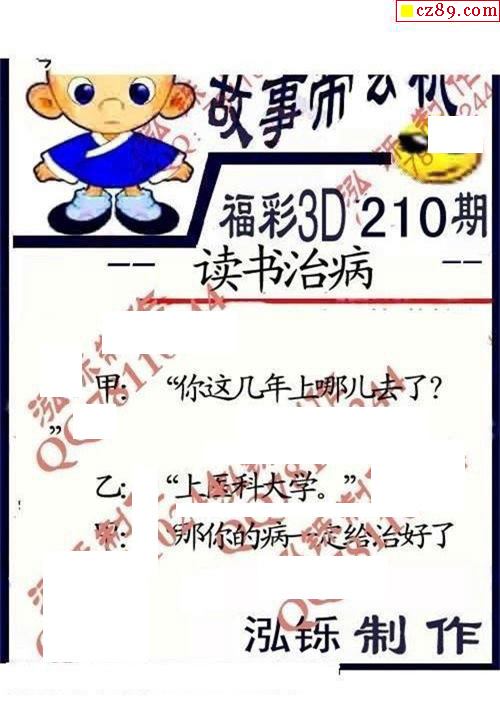 cz89.com
故事师玄机
福彩3D 210期
-- 读书治病 --
甲: “你这几年上哪儿去了?
”
乙: “上医科大学。”
甲: “那你的病一定给治好了
泓铄制作